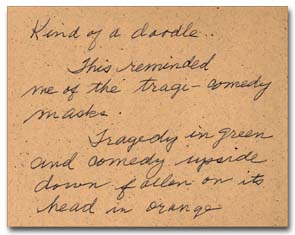 Kind of a doodle..
This reminded
me of the tragi-comedy
masks.
Tragedy in green
and comedy upside
down fallen on its
head in orange